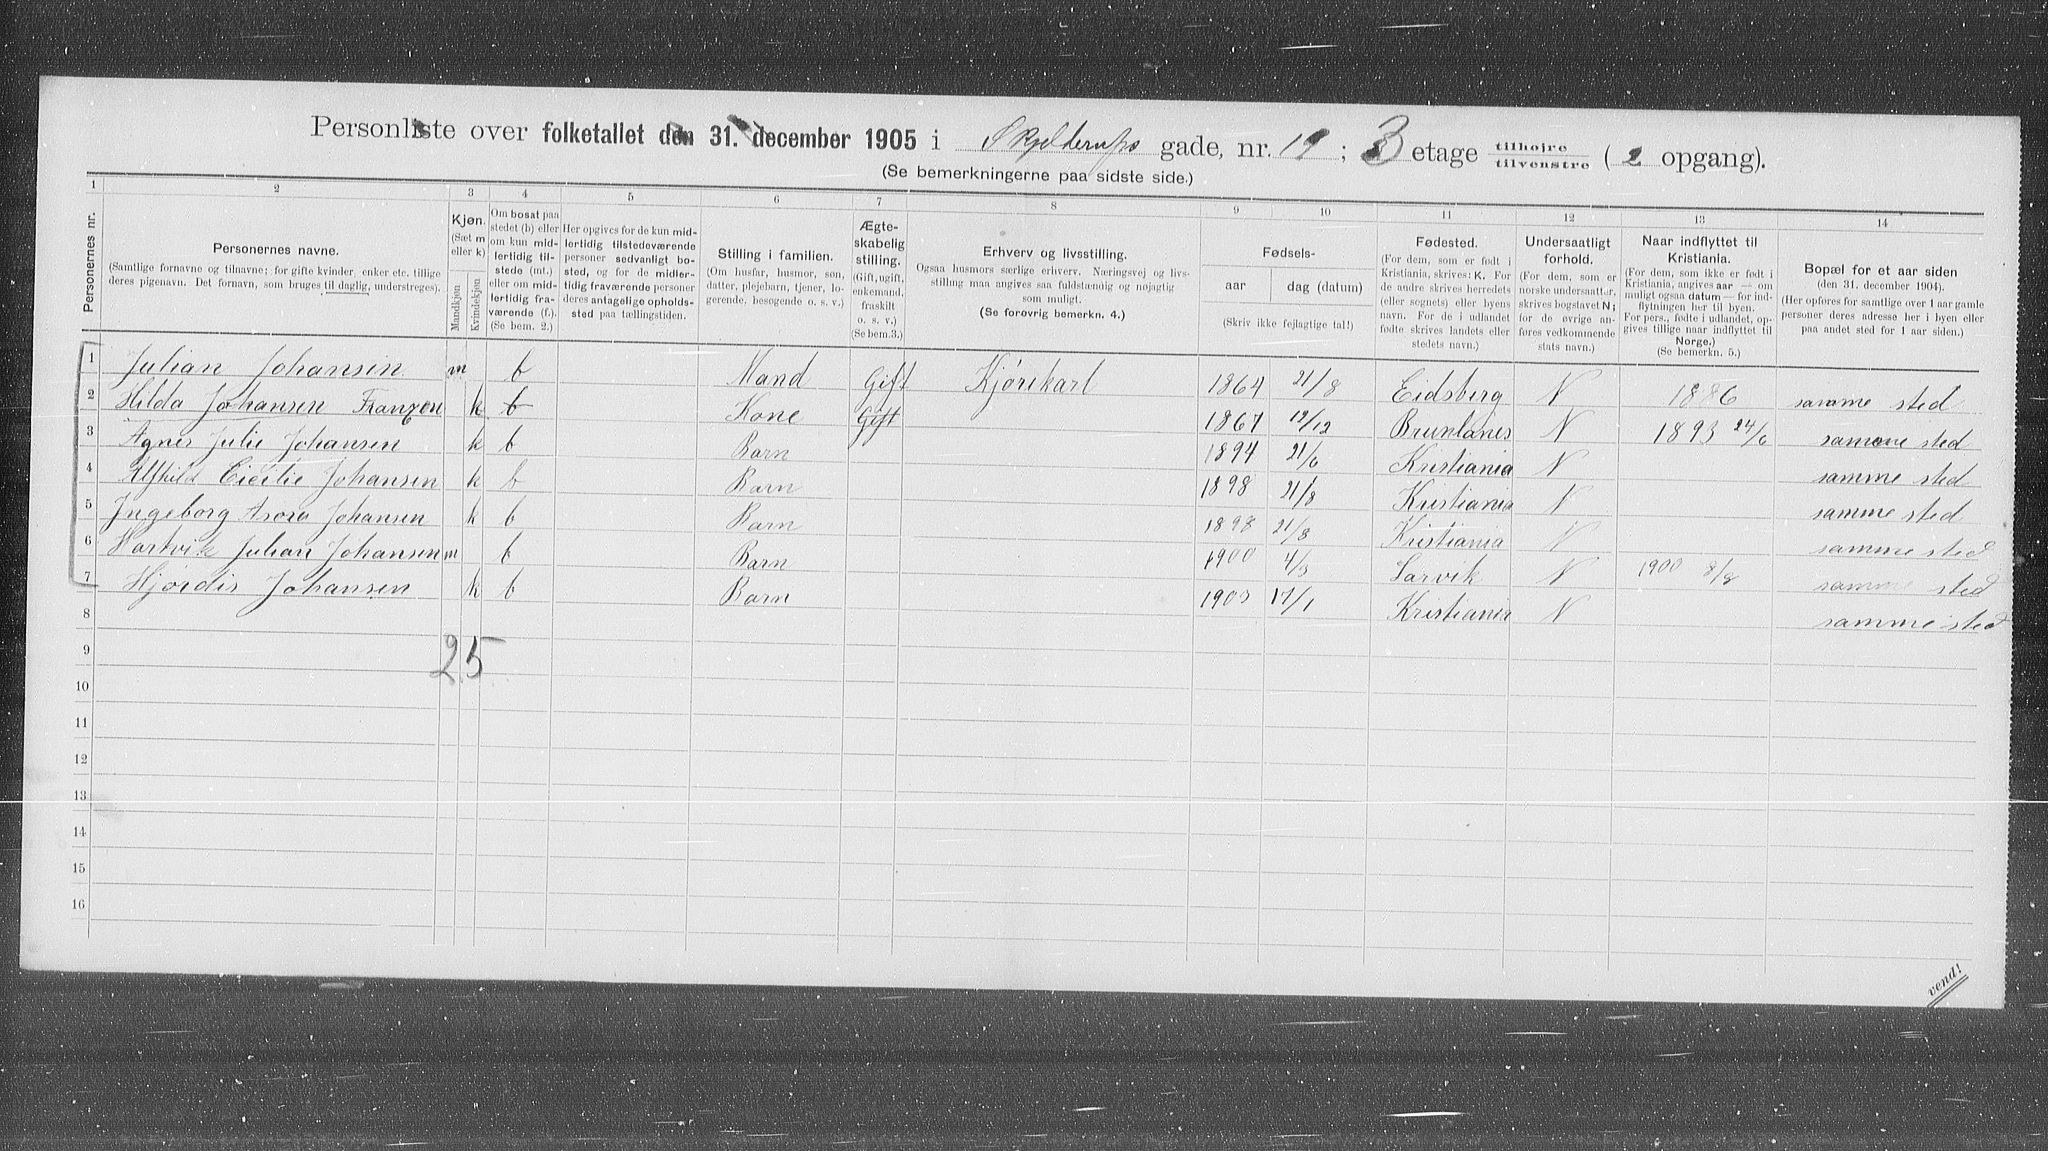 Personliste over folketallet den 31. december 1905 i Skjelderups gade, nr. 19; 3 etage tilhøjre tilvenstre (2 opgang).
(Se bemerkningerne paa sidste side.)
1 2 3 4 5 6 7 8 9 10 11 12 13 14
Personernes nr.
Personernes navne.
(Samtlige fornavne og tilnavne; for gifte kvinder, enker etc. tillige deres pigenavn. Det fornavn, som bruges til daglig, understreges).
Kjøn.
(Sæt m eller k)
Mandkjøn
Kvindekjøn
Om bosat paa stedet (b) eller om kun midlertidig tilstede (mt.) eller om midlertidig fraværende (f.). (Se bem. 2.)
Her opgives for de kun midlertidig tilstedeværende personer sedvanlig bosted, og for de midlertidig fraværende personer deres antagelige opholdssted paa tællingstiden.
Stilling i familien.
(Om husfar, husmor, søn, datter, plejebarn, tjener, logerende, besøgende o. s. v.)
Ægteskabelig stilling.
(Gift, ugift, enkemand, fraskilt o. s. v.)
(Se bem. 3.)
Erhverv og livsstilling.
Ogsaa husmors særlige erhverv. Næringsvej og livsstilling maa angives saa fuldstændig og nøjagtig som muligt.
(Se forøvrig bemerkn. 4.)
Fødsels-
aar
dag (datum)
(Skriv ikke fejlagtige tal!)
Fødested.
(For dem, som er født i Kristiania, skrives: K. For de andre skrives herredets (eller sognets) eller byens navn. For de i udlandet fødte skrives landets eller stedets navn.)
Undersaatligt forhold.
(For dem, som er norske undersaatter, skrives bogstavet N; for de øvrige anføres vedkommende stats navn.)
Naar indflyttet til Kristiania.
(For dem, som ikke er født i Kristiania, angives aar — om muligt ogsaa datum — for indflytningen her til byen. For pers., fødte i udlandet, opgives tillige naar indflyttet til Norge.)
(Se bemerkn. 5.)
Bopæl for et aar siden
(den 31. december 1904).
(Her opføres for samtlige over 1 aar gamle personer deres adresse her i byen eller paa andet sted for 1 aar siden.)
1 Julian Johansen m b Mand Gift Kjørekarl 1864 21/8 Eidsberg N 1886 samme sted
2 Hilda Johansen Franzen k b Kone Gift 1867 12/12 Brunlanes N 1893 24/6 samme sted
3 Agnes Julie Johansen k b Barn 1894 21/6 Kristiania N samme sted
4 Alfhild Cicilie Johansen k b Barn 1898 21/8 Kristiania N samme sted
5 Ingeborg Johansen k b Barn 1898 21/8 Kristiania N samme sted
6 Hartvik Julian Johansen m b Barn 1900 4/3 Larvik N 1900 8/8 samme sted
7 Hjørdis Johansen k b Barn 1903 17/1 Kristiania N samme sted
8
25
9
10
11
12
13
14
15
16
vend!